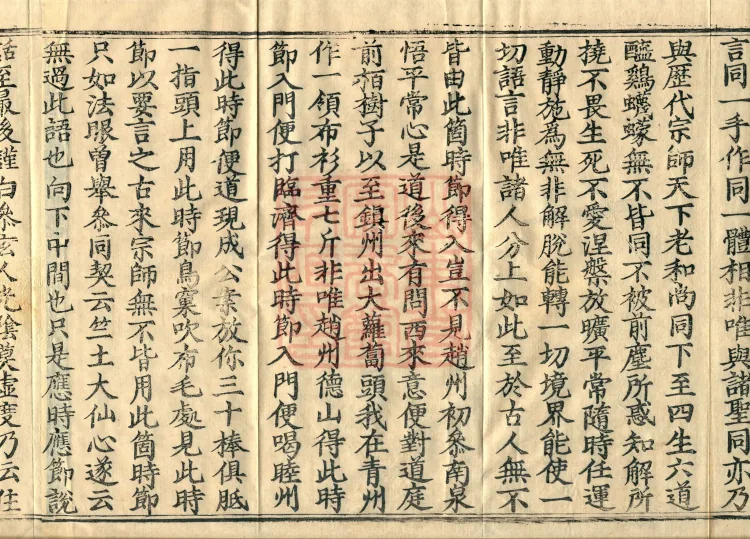 言同一手作同一體相非唯與諸聖同亦乃
與歷代宗師天下老和尚同下至四生六道
醯鷄蠛蠓無不皆同不被前塵所惑知解所
撓不畏生死不愛涅槃放曠平常隨時任運
動靜施為無非解脫能轉一切境界能使一
切語言非唯諸人分上如此至於古人無不
皆由此箇時節得入豈不見趙州初參南泉
悟平常心是道後來有問西來意便對道庭
前栢樹子以至鎮州出大蘿蔔頭我在青州
作一領布衫重七斤非唯趙州德山得此時
節入門便打臨濟得此時節入門便喝睦州
得此時節便道現成公案放你三十棒俱胝
一指頭上用此時節鳥窠吹布毛處見此時
節以要言之古來宗師無不皆用此箇時節
只如法眼曽舉參同契云竺土大仙心遂云
無過此語也向下中間也只是應時應節說
話至最後謹白參玄人光陰莫虛度乃云住